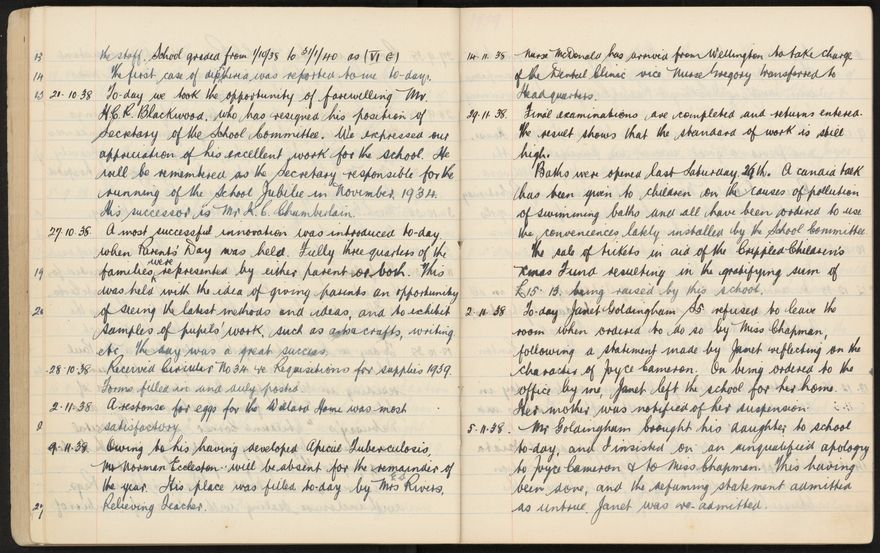 13 the staff. School graded from 1/10/38 to 31/1/40 as (VI C)
14 The first case of diphtheria was reported to me to-day.
15 21-10-38 To-day we took the opportunity of farewelling Mr.
H.E.R. Blackwood, who has resigned his position of
Secretary of the School Committee. We expressed our
appreciation of his excellent work for the school. He
will be remembered as the Secretary responsible for the
running of the School Jubilee in November, 1934.
His successor is Mr A. C. Chamberlain.
27-10-38 A most successful innovation was introduced to-day
when Parents' Day was held. Fully three quarters of the
19 families were represented by either parent or both. This
was held with the idea of giving parents an opportunity
20 of seeing the latest methods and ideas, and to exhibit
samples of pupils' work, such as crafts, writing
etc. The day was a great success.
28-10-38 Received Circular No 34 re Requisitions for supplies 1939.
Forms filled in and duly posted
2-11-38 A response for eggs for the Willard Home was most
satisfactory.
9-11-38 Owing to his having developed Apical Tuberculosis,
Mr Norman Eccleston will be absent for the remainder of
the year. His place was filled to-day by Mrs Rivers,
Relieving Teacher.
14-11-38 Nurse McDonald has arrived from Wellington to take charge
of the Dental Clinic vice Nurse Gregory transferred to
Headquarters.
29-11-38. Final examinations are completed and returns entered.
The result shows that the standard of work is still
high.
Baths were opened last Saturday, 26th. A candid talk
has been given to children on the causes of pollution
of swimming baths and all have been ordered to use
the conveniences lately installed by the School Committee.
The sale of tickets in aid of the Crippled Children's
Xmas Fund resulting in the gratifying sum of
£15-13 being raised by this school.
2-11-38 To-day Janet Goldingham S5 refused to leave the
room when ordered to do so by Miss Chapman,
following a statement made by Janet reflecting on the
character of Joyce Cameron. On being ordered to the
office by me, Janet left the school for her home.
Her mother was notified of her suspension.
5-11-38. Mr Goldingham brought his daughter to school
to-day, and I insisted on an unqualified apology
to Joyce Cameron & to Miss Chapman. This having
been done, and the defaming statement admitted
as untrue, Janet was re-admitted.